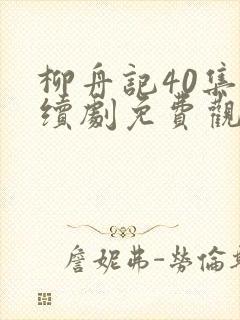 柳舟記40集
續劇免費觀
詹妮弗-勞倫